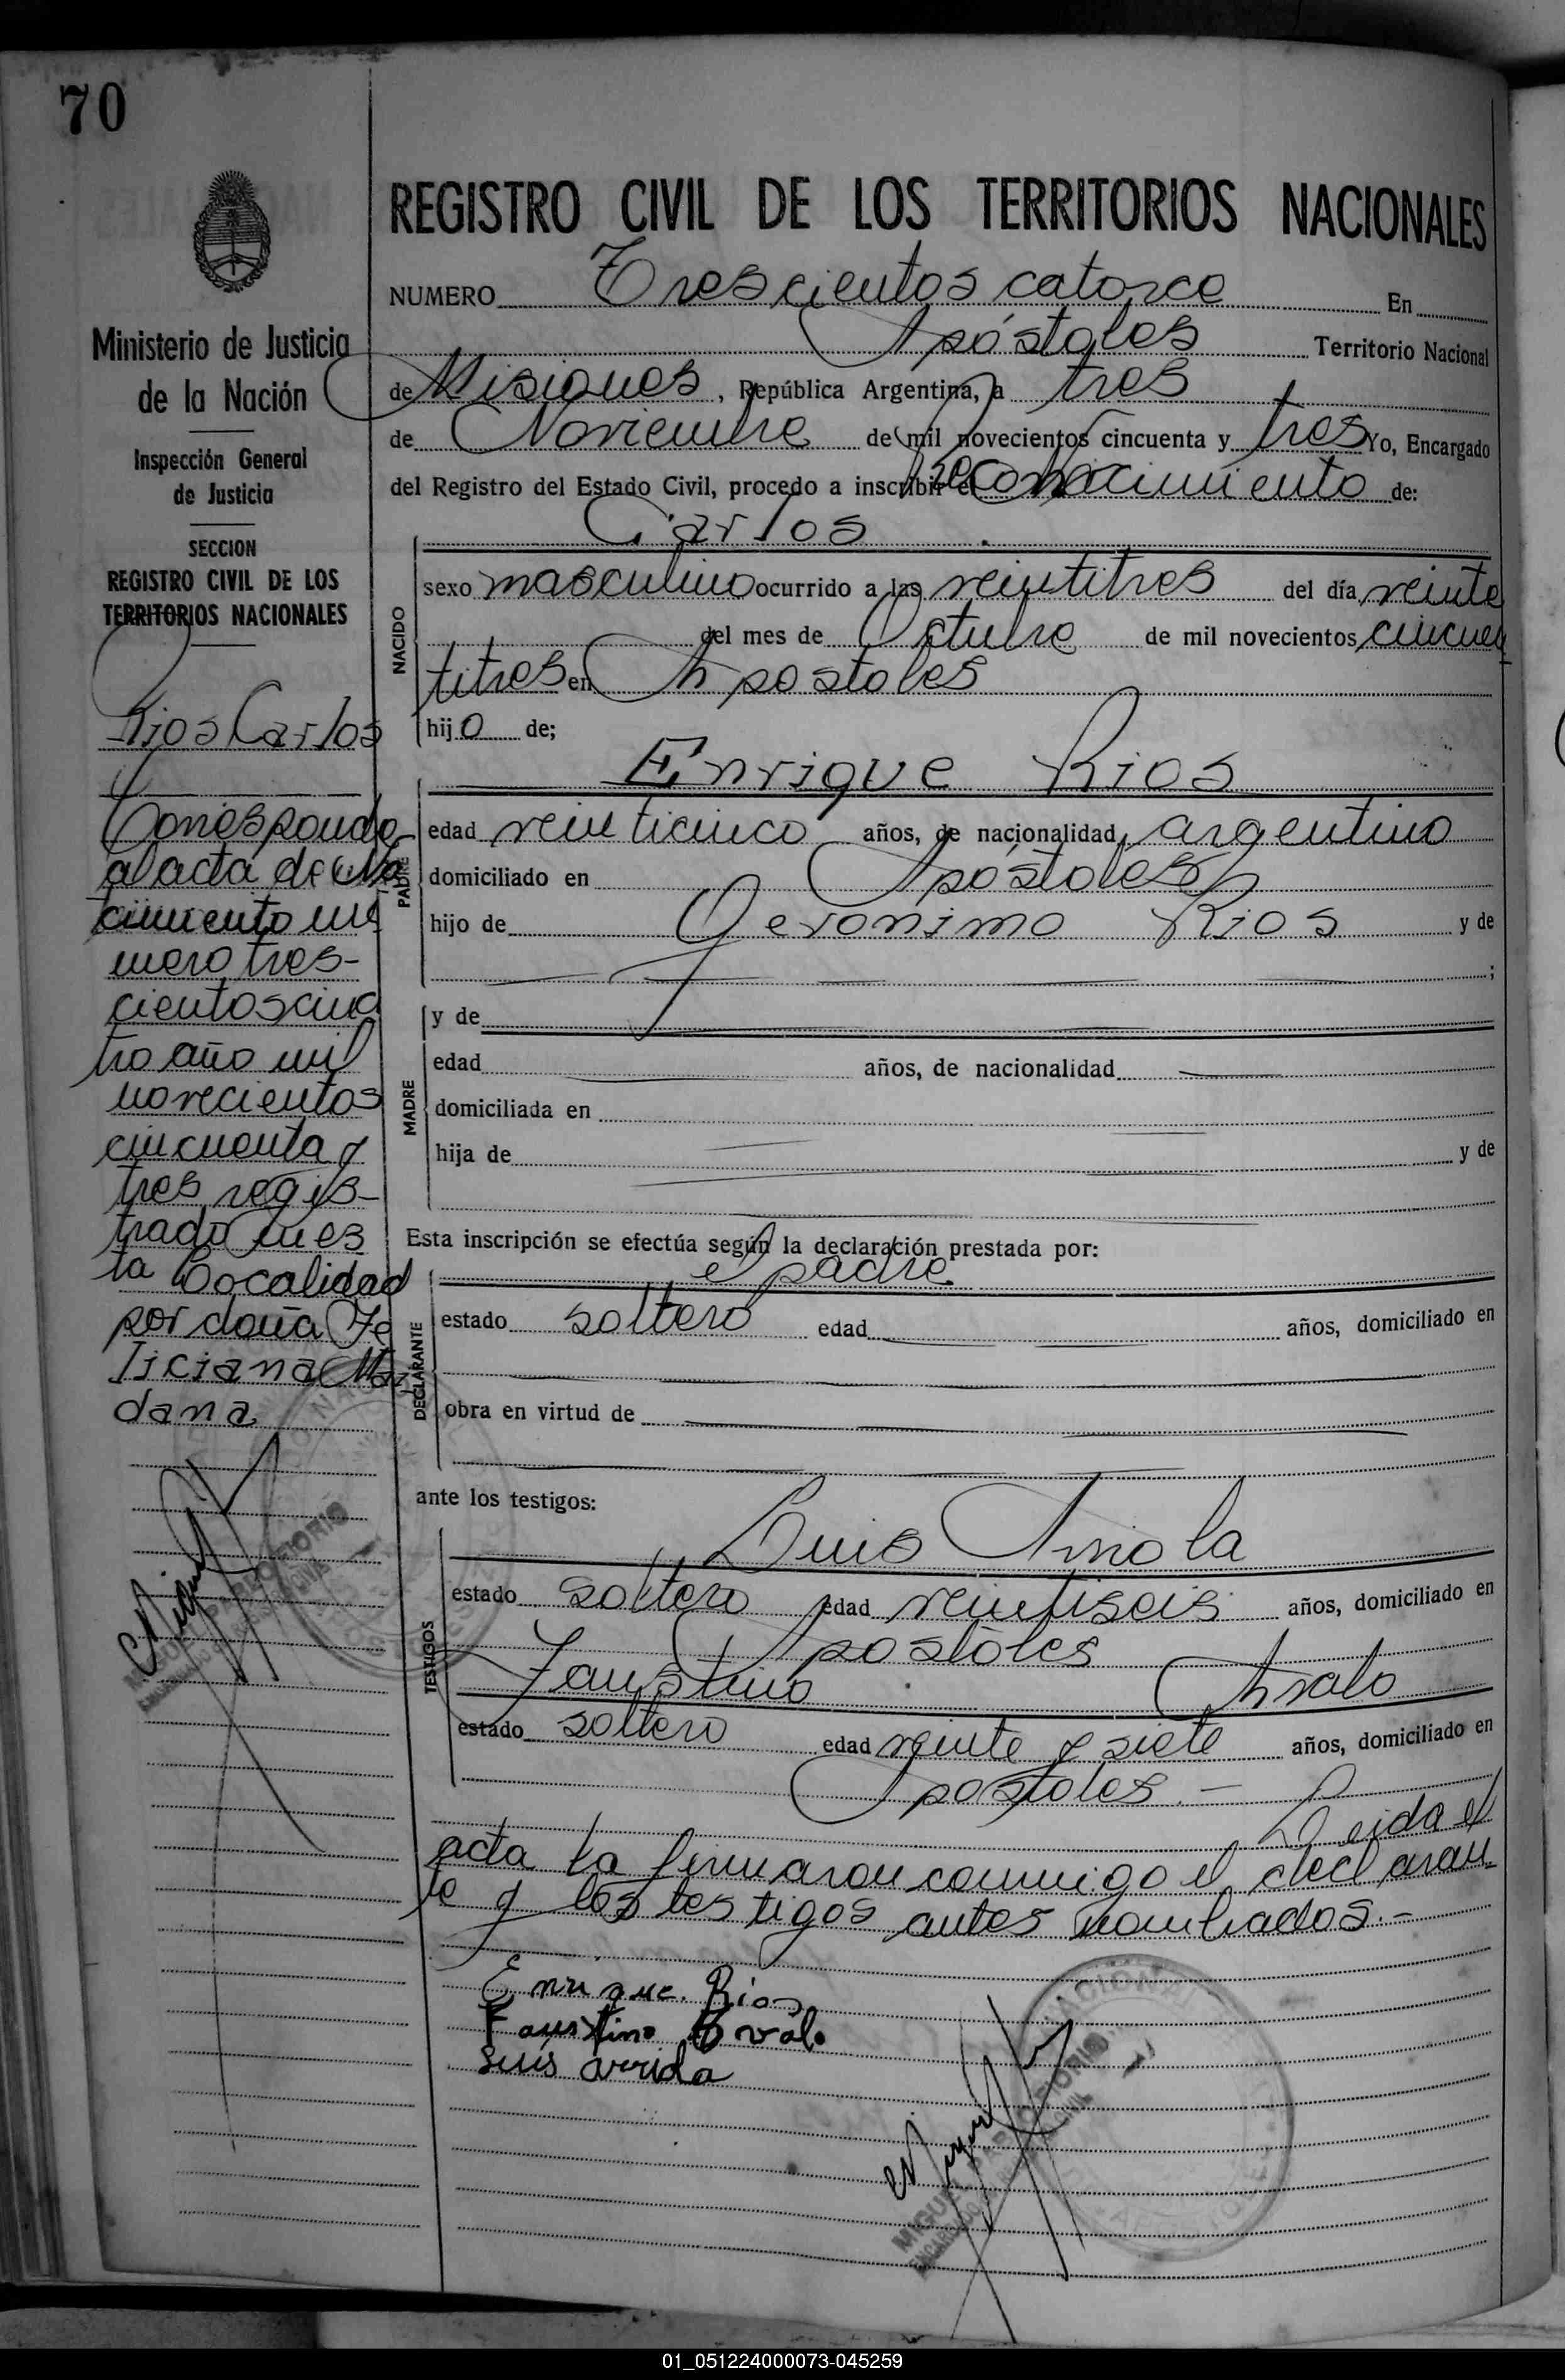 70
Ministerio de Justicia
de la Nación
Inspección General
de Justicia
SECCION
REGISTRO CIVIL DE LOS
TERRITORIOS NACIONALES
Rios Carlos
Corresponde
al acta de Na
cimiento nú
mero tres-
cientos cua
tro año mil
novecientos
cincuenta y
tres regis-
trado en es
ta localidad
por doña Fe
liciana Mai
dana
REGISTRO CIVIL DE LOS TERRITORIOS NACIONALES
NUMERO Trescientos catorce En
Apóstoles Territorio Nacional
de Misiones, República Argentina, a tres
de Noviembre de mil novecientos cincuenta y tres Yo, Encargado
del Registro del Estado Civil, procedo a inscribir el reconocimiento de:
Carlos
NACIDO
sexo masculino ocurrido a las veintitres del día veinte
del mes de Octubre de mil novecientos cincuen
titres en Apostoles
hijo de;
Enrique Rios
PADRE
edad veinticinco años, de nacionalidad argentino
domiciliado en Apóstoles
hijo de Geronimo Rios y de
;
y de
MADRE
edad años, de nacionalidad
domiciliada en
hija de y de
Esta inscripción se efectúa según la declaración prestada por:
el padre
DECLARANTE
estado soltero edad años, domiciliado en
obra en virtud de
ante los testigos:
Luis
TESTIGOS
estado soltero edad veintiseis años, domiciliado en
Apostoles
Faustino
estado soltero edad veinte y siete años, domiciliado en
Apostoles.-
Leida el
acta la firmaron conmigo el declaran
te y los testigos antes nombrados.-
Enrique. Rios
Faustino
Luis
MIGUEL
01_051224000073-045259